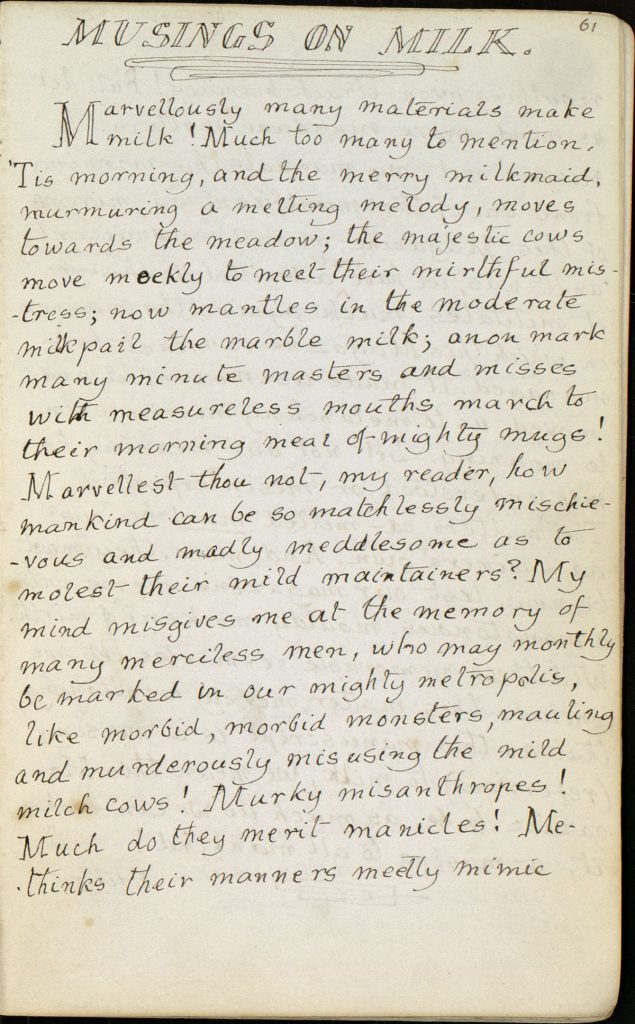 61
MUSINGS ON MILK.
Marvellously many materials make
milk! Much too many to mention.
'Tis morning, and the merry milkmaid,
murmuring a melting melody, moves
towards the meadow; the majestic cows
move meekly to meet their mirthful mis-
-tress; now mantles in the moderate
milkpail the marble milk; anon mark
many minute masters and misses
with measureless mouths march to
their morning meal of mighty mugs!
Marvellest thou not, my reader, how
mankind can be so matchlessly mischie-
-vous and madly meddlesome as to
molest their mild maintainers? My
mind misgives me at the memory of
many merciless men, who may monthly
be marked in our mighty metropolis,
like morbid, morbid monsters, mauling
and murderously misusing the mild
milch cows! Murky misanthropes!
Much do they merit manicles! Me-
-thinks their manners meetly mimic